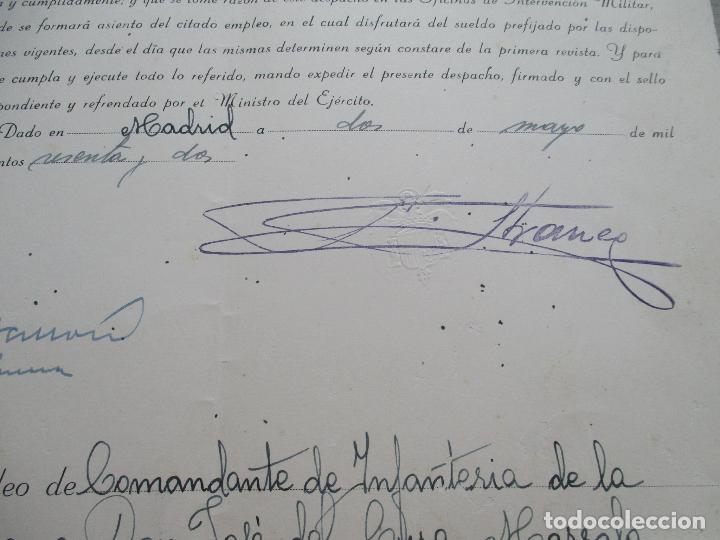 y cumplidamente; y que se tome razón de este despacho en las Oficinas de Intervención Militar,
de se formará asiento del citado empleo, en el cual disfrutará del sueldo prefijado por las dispo-
nes vigentes, desde el día que las mismas determinen según constare de la primera revista. Y para
e cumpla y ejecute todo lo referido, mando expedir el presente despacho, firmado y con el sello
pondiente y refrendado por el Ministro del Ejército.
Dado en Madrid a dos de mayo de mil
ntos sesenta y dos
F. Franco
leo de Comandante de Infantería de la
Don José del
todocoleccion